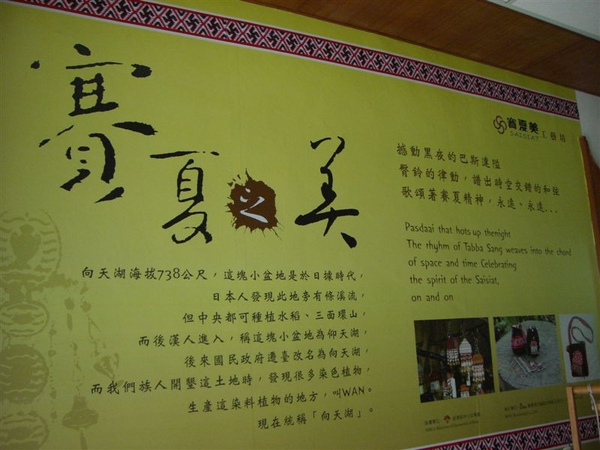 賽夏之美
賽夏美工藝坊
SAISIAT
撼動黑夜的巴斯達隘
臀鈴的律動，譜出時空交錯的和弦
歌頌著賽夏精神，永遠、永遠...
Pasdaai that hots up thenight
The rhyhm of Tabba Sang weaves into the chord
of space and time Celebrating
the spirit of the Saisiat,
on and on
向天湖海拔738公尺，這塊小盆地是於日據時代，
日本人發現此地旁有條溪流，
但中央都可種植水稻、三面環山，
而後漢人進入，稱這塊小盆地為仰天湖，
後來國民政府遷臺改名為向天湖，
而我們族人開墾這土地時，發現很多染色植物，
生產這染料植物的地方，叫WAN。
現在統稱「向天湖」。